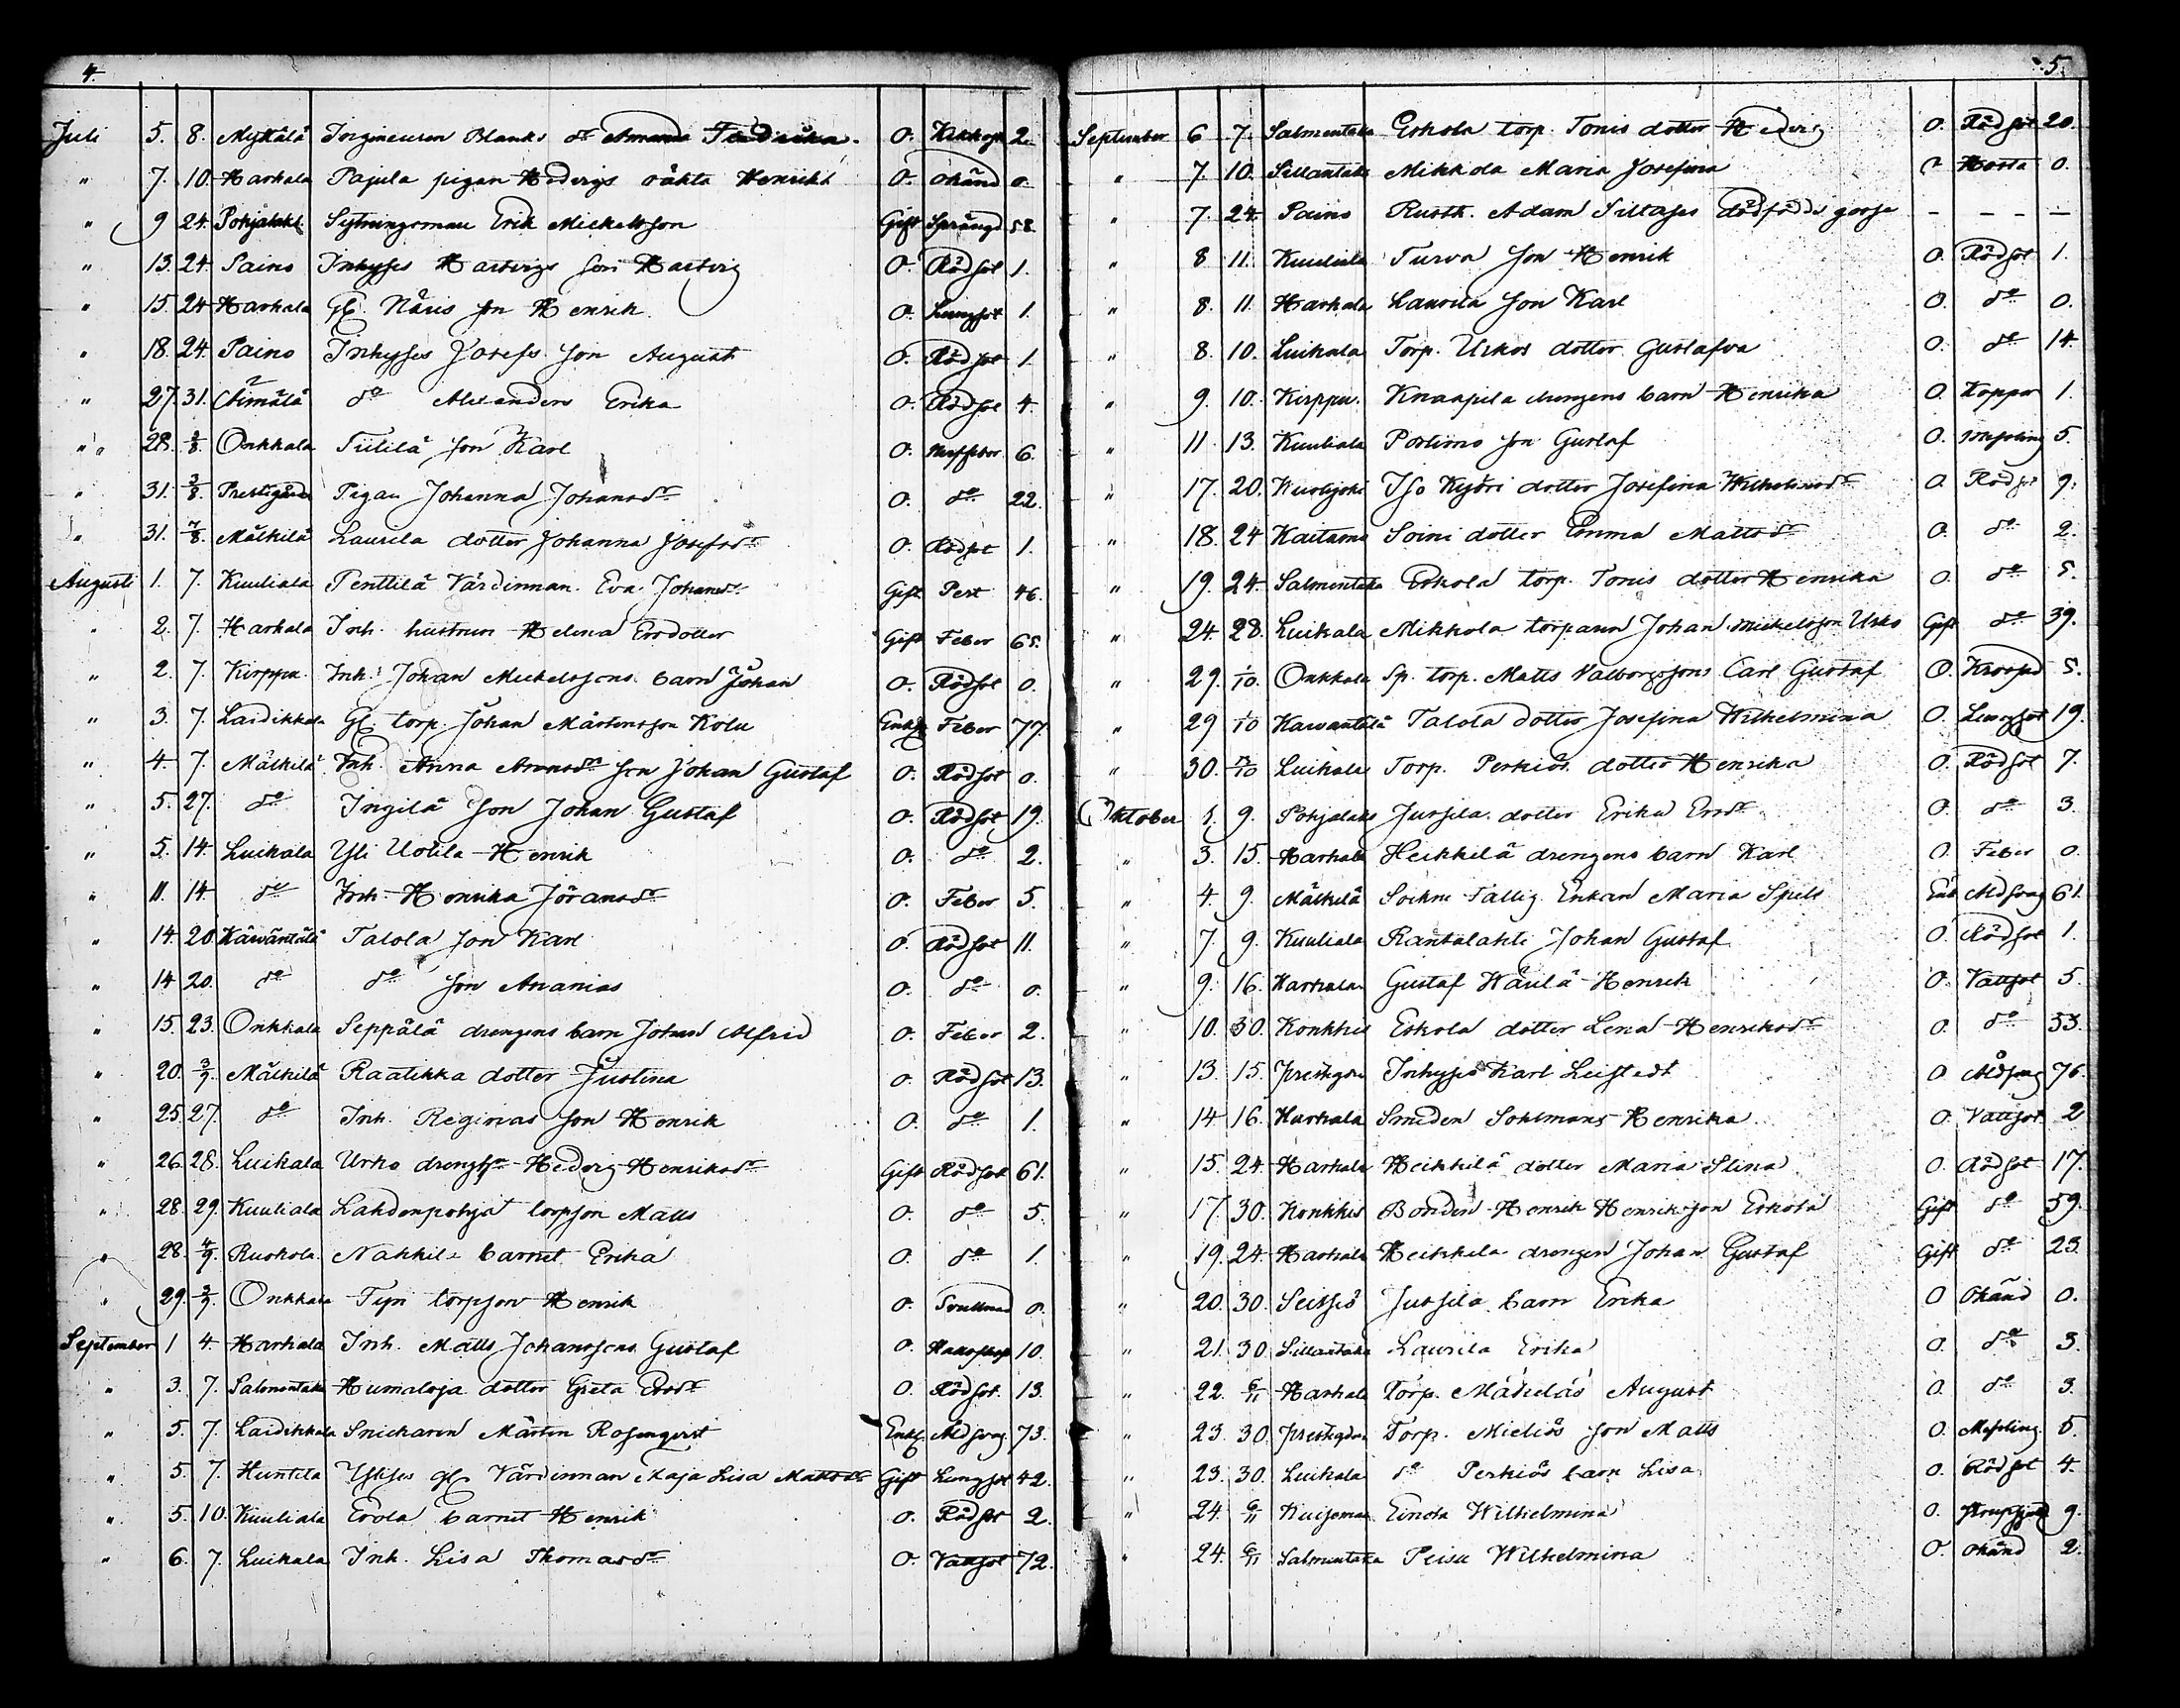 4.
Juli 5. 8. Myttälä Ingineuren Blanks dr Amanda Fredrika. O. Kikhost 2.
" 7. 10. Harhala Pajula pigan Hedvigs oäkta Henrikt O. Okänd 0.
" 9 24. Pohjalaht. Sytningsman Erik Mickelsson Gift Sprängd 58.
" 13. 24. Saino Inhyses Hartvigs son Hartvig O. Rödsot 1.
" 15. 24 Harhala Gl. Näris son Henrik O. Lungsot 1.
" 18. 24. Paino Inhyses Josefs son August O. Rödsot 1.
" 27. 31. Ämälä do Alexanders Erika O. Rödsot 4.
" 28. 2/8. Onkkala Tiililä son Karl O. 6.
" 31. 3/8. Prestgården Pigan Johanna Johansdr O. do 22.
" 31. 7/8. Mälkilä Laurila dotter Johanna Josefsdr O. Rödsot 1.
Augusti 1. 7. Kuuliala Penttilä Värdinnan Eva Johansdr Gift Pest 46.
" 2. 7. Harhala Inh. hustrun Helena Ersdotter Gift Feber 65.
" 2. 7. Kirppu Inh. Johan Mickelssons barn Johan O. Rödsot 0.
" 3. 7. Laidikkala Gl. torp. Johan Mårtensson Kolu Enkl. Feber 77.
" 4. 7. Mälkilä Inh. Anna Aronsdr son Johan Gustaf O. Rödsot 0.
" 5. 27. do Ingilä son Johan Gustaf O. Rödsot 19.
" 5. 14. Luikala Yli Uotila Henrik O. do 2.
" 11. 14 do Inh. Henrika Jöransdr O. Feber 5.
" 14. 20. Käwäntälä Talola son Karl O. Rödsot 11.
" 14 20. do do son Ananias O. do 0.
" 15. 23. Onkkala Seppälä drengens barn Johan Alfrid O. Feber 2.
" 20. 3/9. Mälkilä Raatikka dotter Justina O. Rödsot 13.
" 25. 27. do Inh. Reginas son Henrik O. do 1.
" 26. 28. Luikala Urko drenghn Hedvig Henriksdr Gift Rödsot 61.
" 28. 29. Kuuliala Lahdenpohja torpson Matts O. do 5.
" 28. 4/9. Ruokola Nakkila barnet Erika O. do 1.
" 29. 3/9. Onkkala Typi torpson Henrik O. Svullnad 0.
September 1 4. Harhala Inh. Matts Johanssons Gustaf O. 10.
" 3. 7. Salmentaka Humaloja dotter Greta Ersdr O. Rödsot 13.
" 5. 7. Laidikkala Snickaren Mårten Rosenqvist Enkl. Åldserg. 73.
" 5. 7. Huntila Ylises gl. Värdinnan Kaja Lisa Mattsdr Gift Lungsot 42.
" 5. 10. Kuuliala Eerola barnet Henrik O. Rödsot 2.
" 6. 7. Luikala Inh. Lisa Thomasdr O. Vattsot 72.
5.
September 6 7. Salmentaka Eskola torp. Tonis dotter Hedvig O. Rödsot 20.
" 7. 10. Sillantaka Mikkola Maria Josefina O. Hosta 0.
" 7. 24. Paino Rusth. Adam Siltases dödfödde gosse — — — —
" 8 11. Kuuliala Turva son Henrik O. Rödsot 1.
" 8. 11. Harhala Laurila son Karl O. do 0.
" 8. 10. Luikala Torp. Urkos dotter Gustafva O. do 14.
" 9. 10. Kirppu. Knaapila drengens barn Henrika O. Koppor 1.
" 11. 13. Kuuliala Portimo son Gustaf O. 5.
" 17. 20. Iso Kyöri dotter Josefina Wilhelmsdr O. Rödsot 9.
" 18. 24 Kaitamo Soini dotter Emma Mattsdr O. do 2.
" 19. 24. Salmentaka Eskola torp. Tonis dotter Henrika O. do 5.
" 24. 28. Luikala Mikkola torparen Johan Mickelsson Urko Gift do 39.
" 29. 1/10. Onkkala Sp. torp. Matts Valborgssons Carl Gustaf O. 5.
" 29 1/10 Kawantilä Talola dotter Josefina Wilhelmina O. Lungsot 19.
" 30. Luikala Torp. Perkiös dotter Henrika O. Rödsot 7.
Oktober 1. 9. Pohjalaht Jussila dotter Erika Ersdr O. do 3.
" 3. 15. Harhala Heikkilä drengens barn Karl O. Feber 0.
" 4. 9. Mälkilä Sockne Fattig Enkan Maria Spets Enk Åldserg 61.
" 7. 9. Kuuliala Rantalahti Johan Gustaf O. Rödsot 1.
" 9. 16. Harhala Gustaf Wäulä Henrik O. Vattsot 5.
" 10. 30. Konkkis Eskola dotter Lena Henriksdr O. do 33.
" 13. 15. Prestgdn Inhyses Karl Leistedt O. Åldserg 76.
" 14 16. Harhala Smeden Sohlmans Henrika O. Vattsot 2
" 15. 24 Harhala Heikkilä dotter Maria Stina O. Rödsot 17.
" 17. 30. Konkkis Bonden Henrik Henriksson Eskola Gift do 59.
" 19. 24. Harhala Heikkila drengen Johan Gustaf Gift do 23.
" 20. 30. Seitsiö Jussila barn Erika O Okänd 0.
" 21. 30. Sillantaka Laurila Erika O. do 3.
" 22. 6/11 Harhala Torp. Mäkeläs August O. do 3.
" 23. 30. Prestgdn Torp. Mieliös son Matts O. Messling 5.
" 23. 30. Luikala do Perkiös barn Lisa O. Rödsot 4.
" 24. 6/11 Kuisema Einola Wilhelmina O. 9.
" 24. 6/11 Salmentaka Peisu Wilhelmina O. Okänd 2.